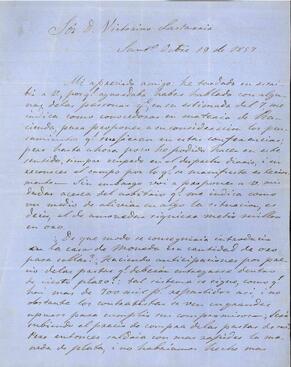 Sór D. Victorino Lastarria
Santo Octre 19 de 1857
Mi apreciado amigo: he tardado en escribi
a V, porqe aguardaba haber hablado con algu
nas de las personas qe en su estimada del 7 me
indica como conocedoras en materia de Ha
cienda, para proponer a su consideracion los pen
samientos qe en estas
pero hasta ahora no he podido hacer en este
sentido, siempre ocupado en el despacho diario, i en
reconocer el campo por lo qe se manifiesta esterior
mente. Sin embargo voi a proponer a V mis
dudas acerca del arbitrio qe me indica como
un medio de aliviar en algo la situacion, es
decir, el de amonedar siquiera medio millon
en oro
¿De que modo se conseguiria introducir
en la casa de Moneda esa cantidad de oro
para sellar? ¿Haciendo anticipaciones por pre
cio de las pastas qe deberan entregarse dentro
de cierto plazo?: tal sistema se sigue, como qe
hai mas de 300 mil ps repartidos asi; i no
obstante los contratistas se ven en grandes
apuros para cumplir sus compromisos. ¿Será
subiendo el precio de compra de las pastas de oro?
Pero entonces saldria con mas rapidez la mo
neda de plata, i no habriamos hecho mas